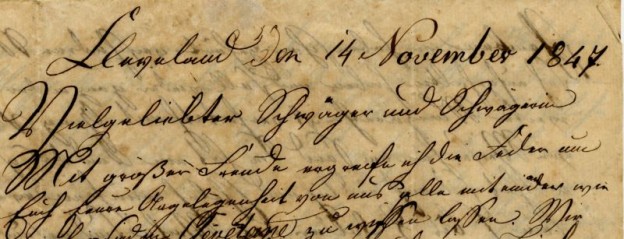 Cleveland den 14 November 1847.
Vielgeliebter Schwager und Schwägerin
Mit großer Freude ergreife ich die Feder um
Euch Angelegenheit von uns alle mit einander wie
Cleveland zu wissen lassen. Wir